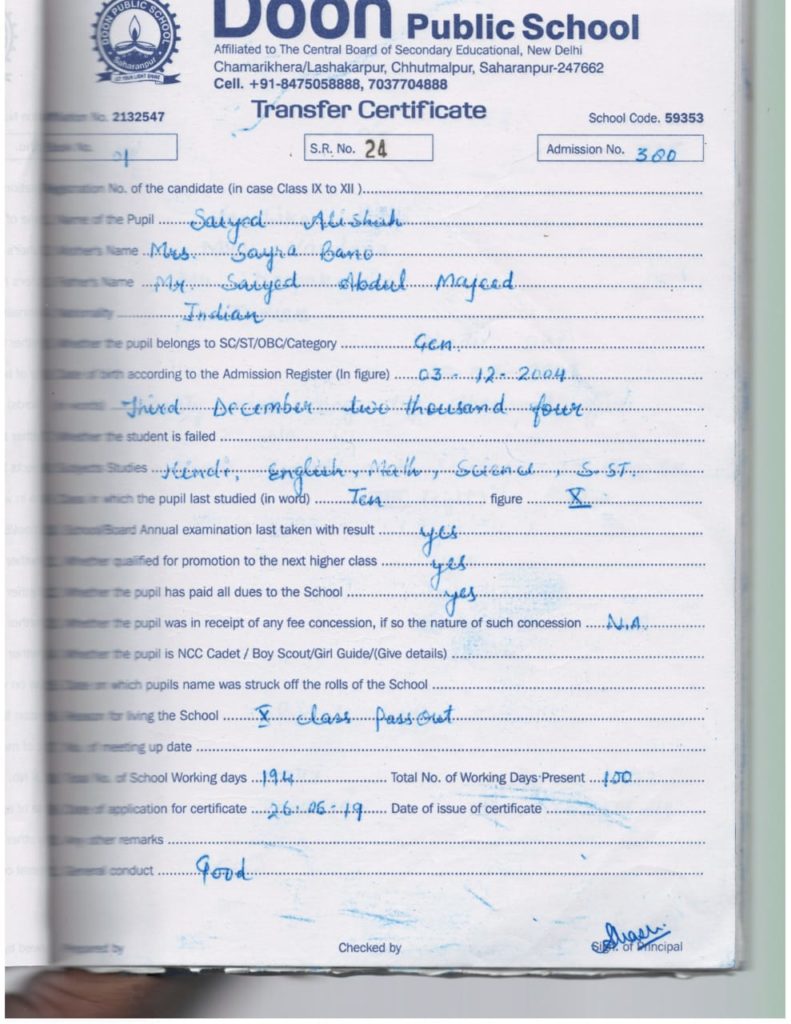 DOON PUBLIC SCHOOL
Saharanpur
LET YOUR LIGHT SHINE
Doon Public School
Affiliated to The Central Board of Secondary Educational, New Delhi
Chamarikhera/Lashakarpur, Chhutmalpur, Saharanpur-247662
Cell. +91-8475058888, 7037704888
Transfer Certificate
No. 2132547 School Code. 59353
01 S.R. No. 24 Admission No. 380
Registration No. of the candidate (in case Class IX to XII )
Name of the Pupil Saiyed Alishah
Mother's Name Mrs. Sayra Bano
Name Mr. Saiyed Abdul Majeed
Nationality Indian
Whether the pupil belongs to SC/ST/OBC/Category Gen.
Date of birth according to the Admission Register (In figure) 03 - 12 - 2004
Third December two thousand four
Whether the student is failed
Subjects Studies Hindi, English, Math, Science, S.ST.
Class in which the pupil last studied (in word) Ten figure X
School/Board Annual examination last taken with result yes
Whether qualified for promotion to the next higher class yes
Whether the pupil has paid all dues to the School yes
Whether the pupil was in receipt of any fee concession, if so the nature of such concession N.A.
Whether the pupil is NCC Cadet / Boy Scout/Girl Guide/(Give details)
Date on which pupils name was struck off the rolls of the School
Reason for living the School X class Pass Out
No. of meeting up date
Total No. of School Working days 194 Total No. of Working Days Present 100
Date of application for certificate 26.06.19 Date of issue of certificate
Any other remarks
General conduct Good
Prepared by Checked by Sign. of Principal